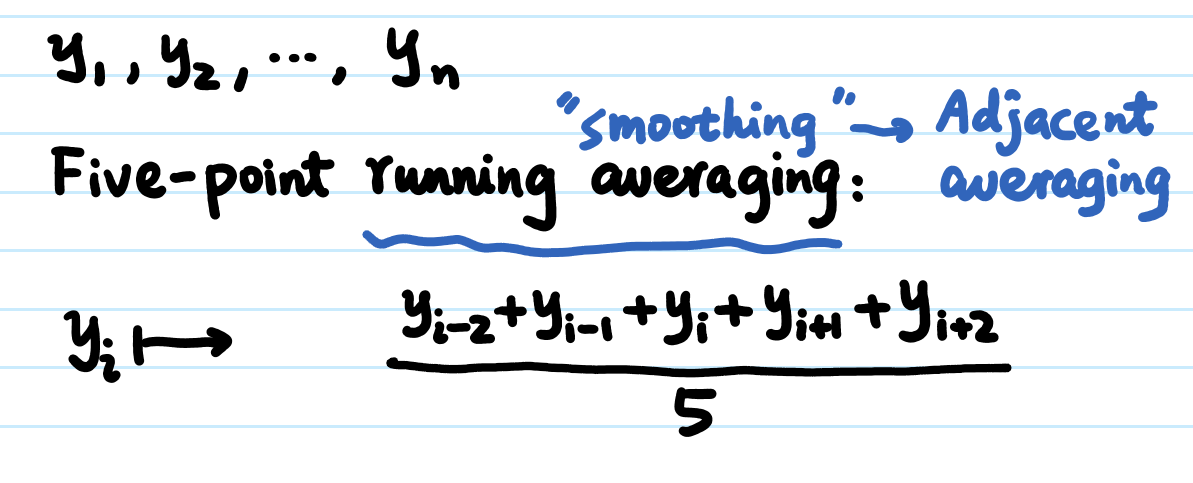 y₁, y₂, ⋯, yₙ
"smoothing" → Adjacent averaging
Five-point running averaging:
yᵢ ↦ (yᵢ₋₂ + yᵢ₋₁ + yᵢ + yᵢ₊₁ + yᵢ₊₂) / 5